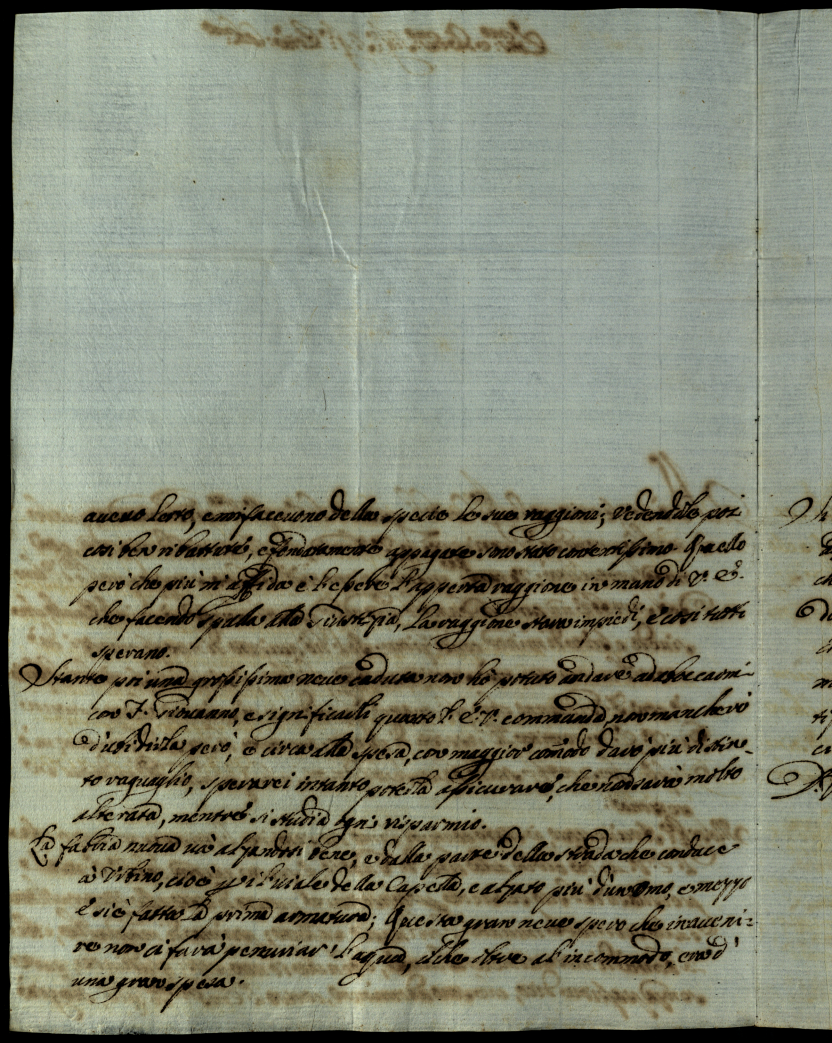 aveva letto, e mi facevono della specie le sue raggioni; vedendole poi
cosi ben ribattute, e fondatamente appagate sono stato contentissimo. Quello
però che più m'affida è l'essere l'appenta raggione in mano di V. E.
che facendo spalla alla Giustizia, la raggione stara in piedi, e cosi tutti
sperano.
Stante poi una grossissima neve caduta non hò potuto andare ad abboccarmi
con F. Giovanno, e significarli quanto l'E. V. commanda non mancherò
d'ubidirla però, e circa alla spesa, con maggior comodo darò più distin-
to raguaglio, sperarei intanto poterla assicurare, che non sarà molto
alterata, mentre si studia ogni risparmio.
La fabrica nuova và alzandosi bene, e dalla parte della strada che conduce
à Urbino, cioè per il viale della Capella, è alzato più d'un omo, e mezzo
e si è fatta la prima armatura; Questa gran neve spero che in aveni-
re non ci farà penuriar l'aqua, il che oltre al incommodo, era d'
una gran spesa.